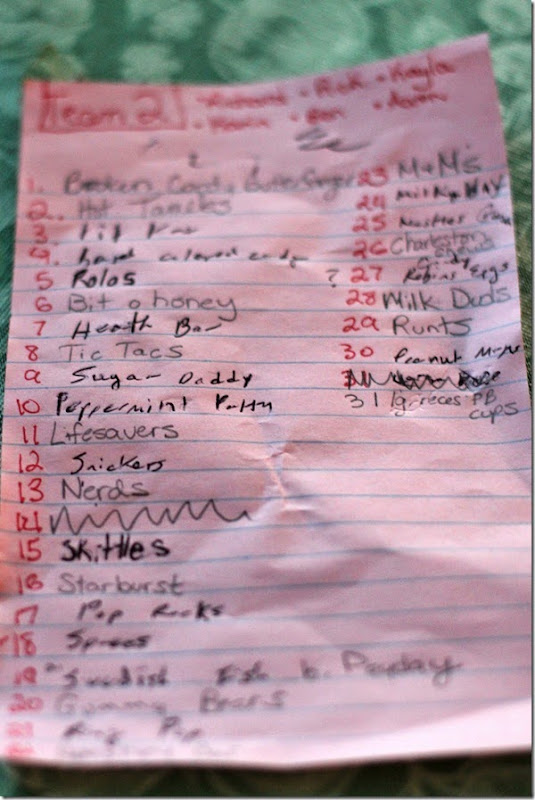 Team 2 • Richard • Rick • Kayla
• Kevin • Ben • Aaron
1. Broken Candy Butterfinger
2. Hot Tamales
3 Kit Kat
4. hard colored candy
5 Rolos
6 Bit o honey
7 Heath Bar
8 Tic Tacs
9 Sugar Daddy
10 Peppermint Patty
11 Lifesavers
12 Snickers
13 Nerds
14
15 Skittles
16 Starburst
17 Pop Rocks
18 Sprees
19 Swedish Fish b. Payday
20 Gummy Bears
21 Ring Pop
23 M+M's
24 Milky Way
25
26 Charleston
Chew
? 27 Robins Eggs
28 Milk Duds
29 Runts
30 Peanut
31 lg reeces PB
cups